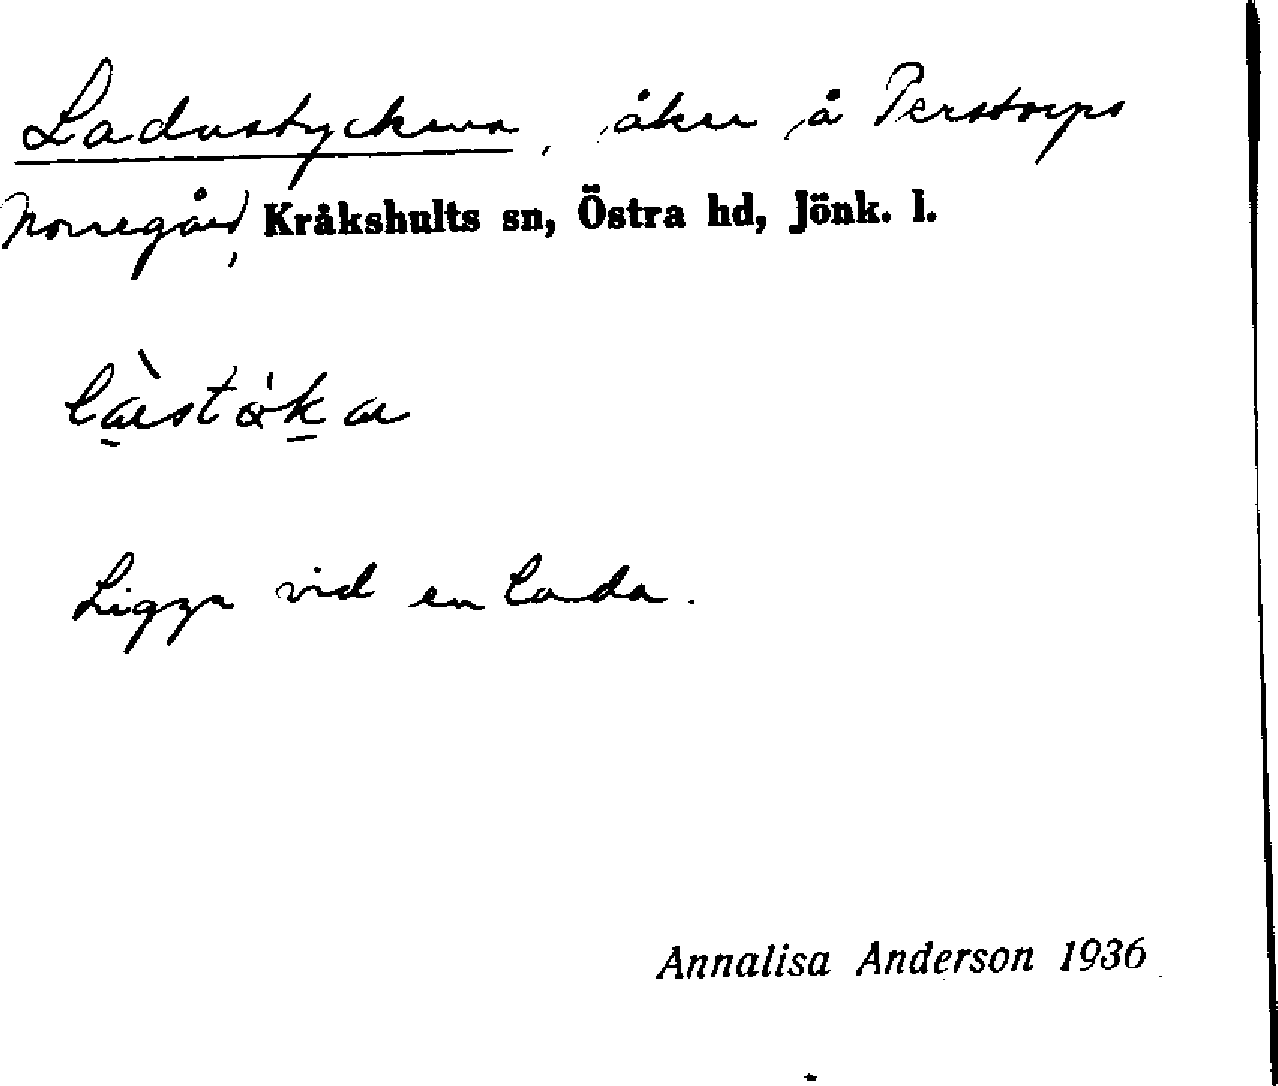 Ladustyckena, åker å Perstorps
Norregård, Kråkshults sn, Östra hd, Jönk. l.
Ligger vid en lada.
Annalisa Anderson 1936